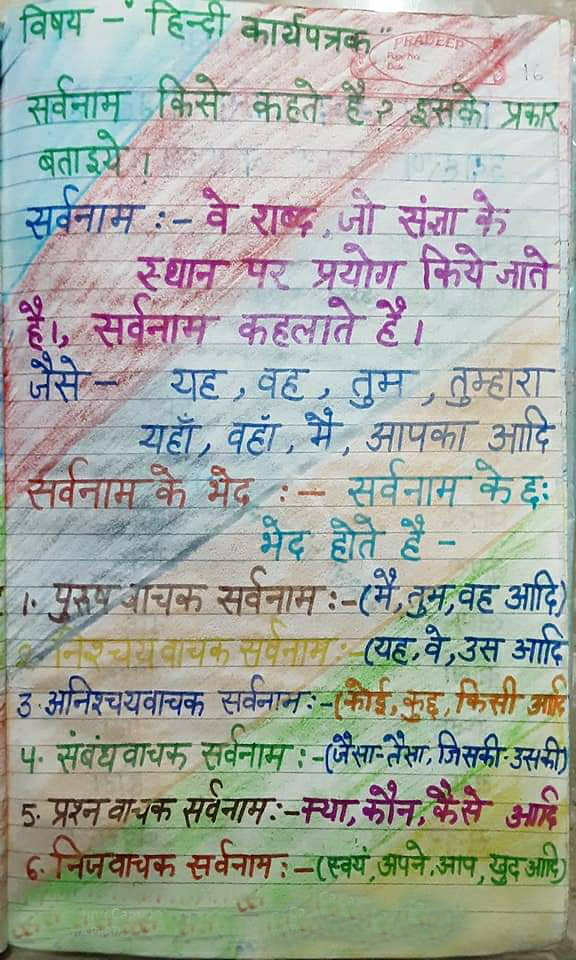 विषय - "हिन्दी कार्यपत्रक"
PRADEEP
Page No.
Date
16
सर्वनाम किसे कहते है? इसके प्रकार
बताइये।
सर्वनाम :- वे शब्द, जो संज्ञा के
स्थान पर प्रयोग किये जाते
है।, सर्वनाम कहलाते है।
जैसे - यह, वह, तुम, तुम्हारा
यहाँ, वहाँ, मै, आपका आदि
सर्वनाम के भेद :- सर्वनाम के छः
भेद होते है -
1. पुरुष वाचक सर्वनाम :- (मै, तुम, वह आदि)
2. निश्चयवाचक सर्वनाम :- (यह, वे, उस आदि
3. अनिश्चयवाचक सर्वनाम :- (कोई, कुछ, किसी आदि
4. संबंधवाचक सर्वनाम :- (जैसा-तैसा, जिसकी-उसकी)
5. प्रश्नवाचक सर्वनाम :- क्या, कौन, कैसे आदि
6. निजवाचक सर्वनाम :- (स्वयं, अपने, आप, खुद आदि)